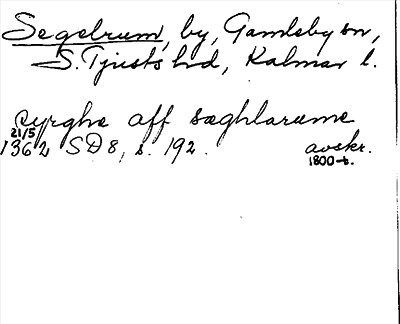 Segelrum, by, Gamleby sn,
S. Tjusts hd, Kalmar l.
cyrghe aff sæghlarume
21/5
1362 SD 8, s. 192. avskr.
1800-t.